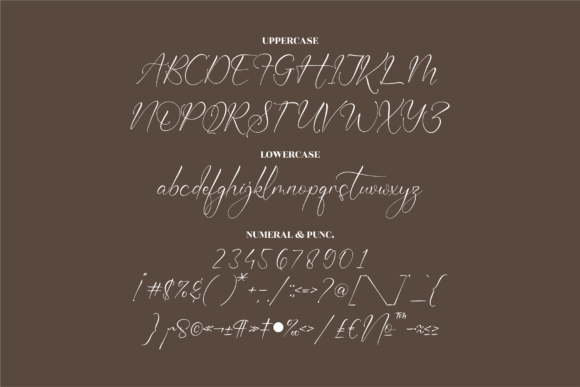 UPPERCASE
ABCDEFGHIJKLM
NOPQRSTUVWXYZ
LOWERCASE
abcdefghijklmnopqrstuvwxyz
NUMERAL & PUNC.
2345678901
"#$%&()*+-,/:;<=>?@[\]^_`{
}